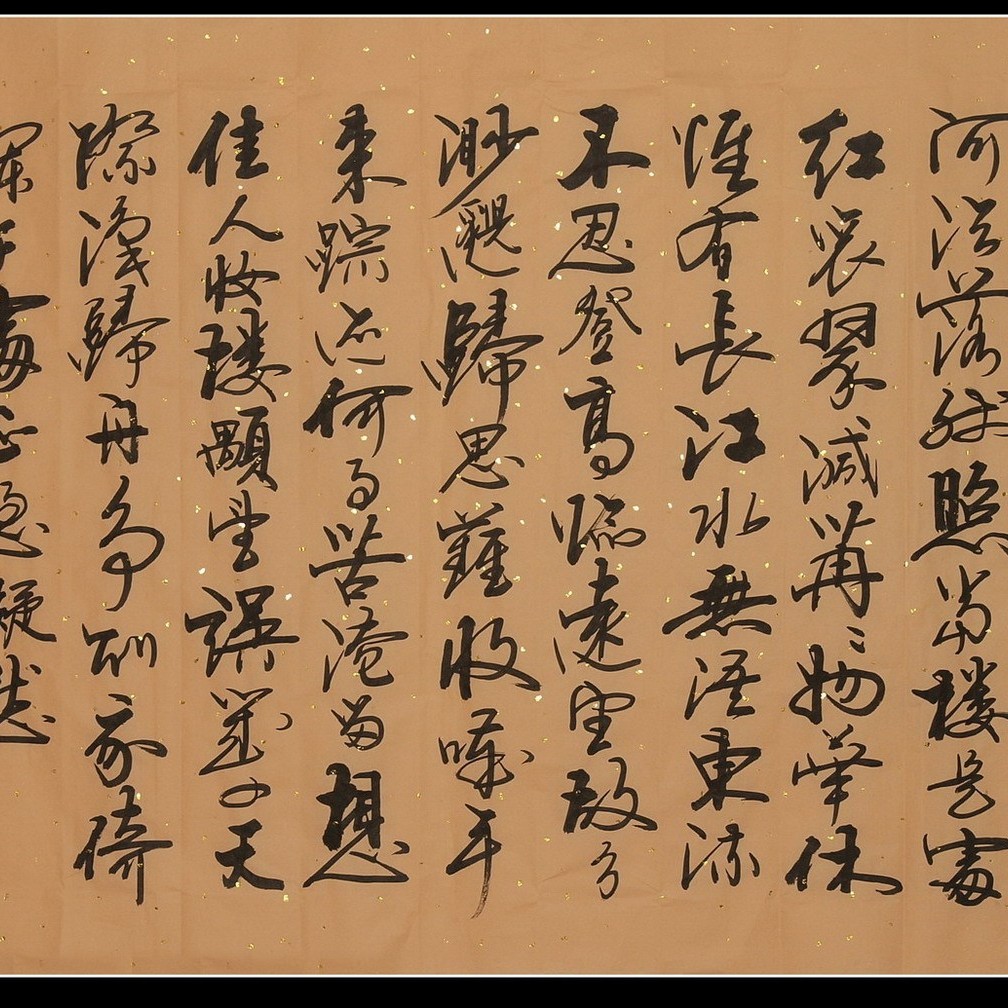 河冷落殘照當樓是處
紅衰翠減苒々物華休
惟有長江水無語東流
不忍登高臨遠望故乡
渺邈歸思難收嘆年
來蹤迹何事苦淹留想
佳人妝樓顒望誤幾回天
際識歸舟爭知我倚
闌干處正恁凝愁